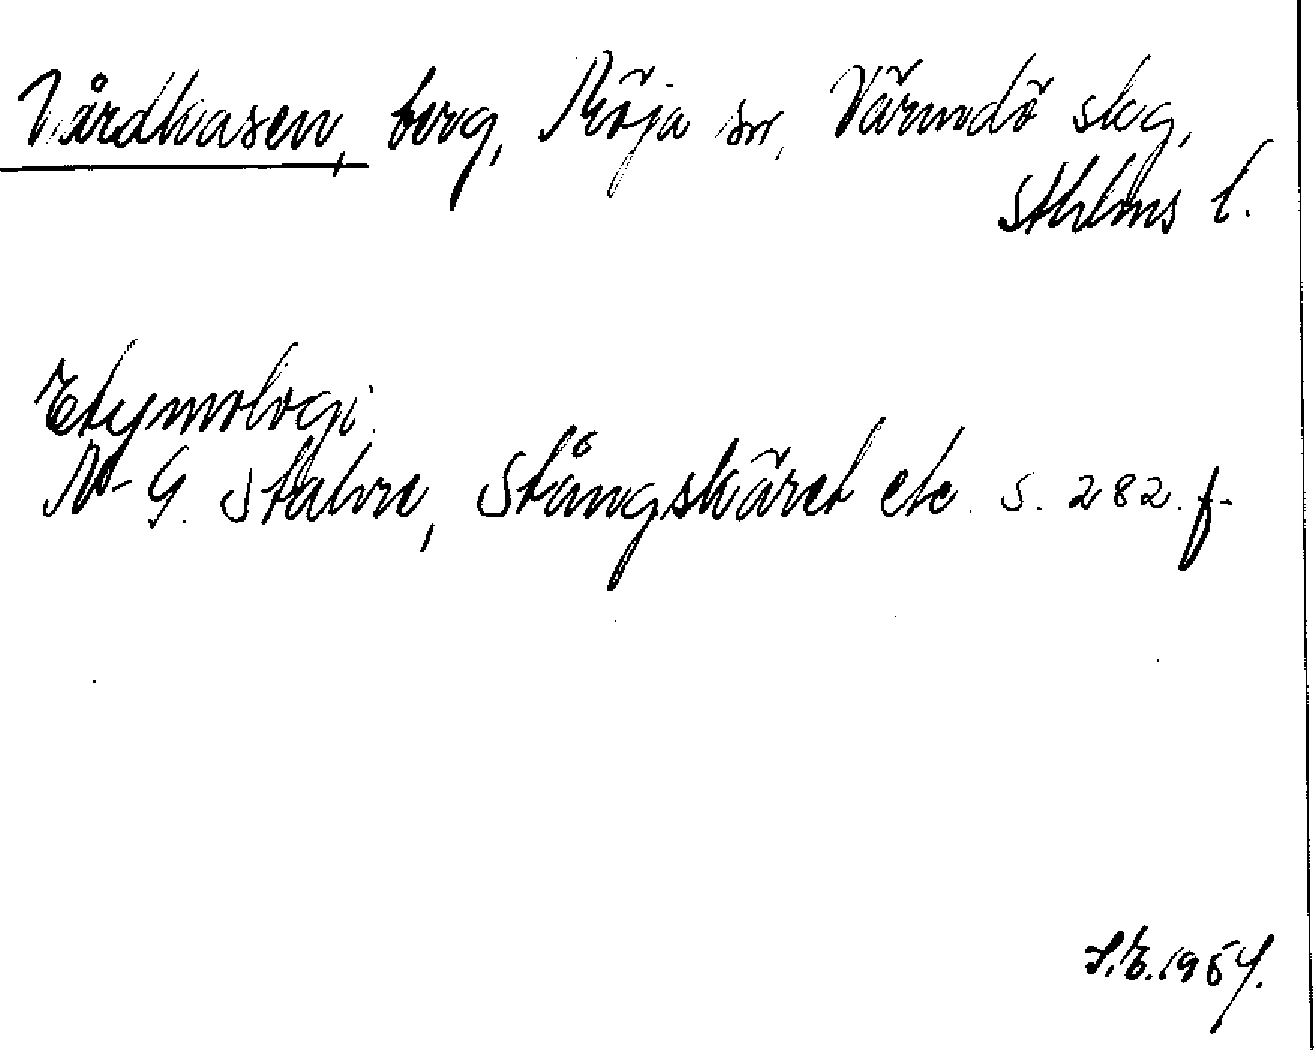 Vårdkasen, berg, Möja sn, Värmdö skg,
Sthlms l.
Etymologi:
N-G. Stahre, Stångskäret etc. s. 282. f.
S.E. 1954.